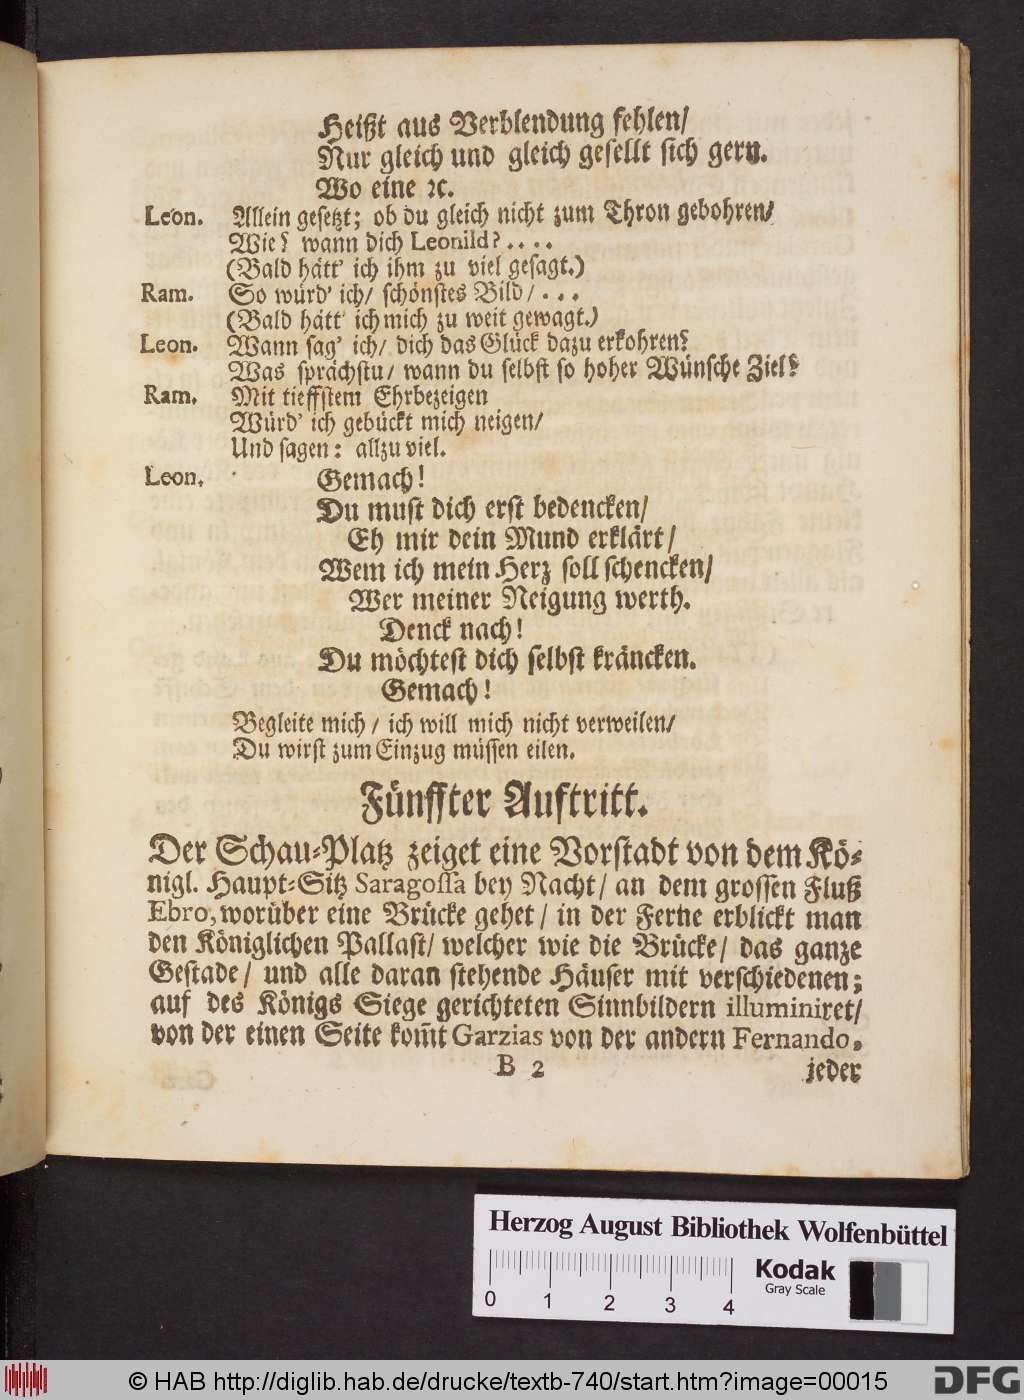 Heißt aus Verblendung fehlen/
Nur gleich und gleich gesellt sich gern.
Wo eine ꝛc.
Leon. Allein gesetzt; ob du gleich nicht zum Thron gebohren/
Wie? wann dich Leonild? . . . .
(Bald hätt' ich ihm zu viel gesagt.)
Ram. So würd' ich/ schönstes Bild/ . . .
(Bald hätt' ich mich zu weit gewagt.)
Leon. Wann sag' ich/ dich das Glück dazu erkohren?
Was sprächstu/ wann du selbst so hoher Wünsche Ziel?
Ram. Mit tieffstem Ehrbezeigen
Würd' ich gebückt mich neigen/
Und sagen: allzu viel.
Leon. Gemach!
Du must dich erst bedencken/
Eh mir dein Mund erklärt/
Wem ich mein Herz soll schencken/
Wer meiner Neigung werth.
Denck nach!
Du möchtest dich selbst kräncken.
Gemach!
Begleite mich/ ich will mich nicht verweilen/
Du wirst zum Einzug müssen eilen.
Fünffter Auftritt.
Der Schau-Platz zeiget eine Vorstadt von dem Kö-
nigl. Haupt-Sitz Saragossa bey Nacht/ an dem grossen Fluß
Ebro, worüber eine Brücke gehet/ in der Ferne erblickt man
den Königlichen Pallast/ welcher wie die Brücke/ das ganze
Gestade/ und alle daran stehende Häuser mit verschiedenen;
auf des Königs Siege gerichteten Sinnbildern illuminiret/
von der einen Seite kom̄t Garzias von der andern Fernando.
B 2 jeder
Herzog August Bibliothek Wolfenbüttel
Kodak
Gray Scale
0 1 2 3 4
© HAB http://diglib.hab.de/drucke/textb-740/start.htm?image=00015
DFG